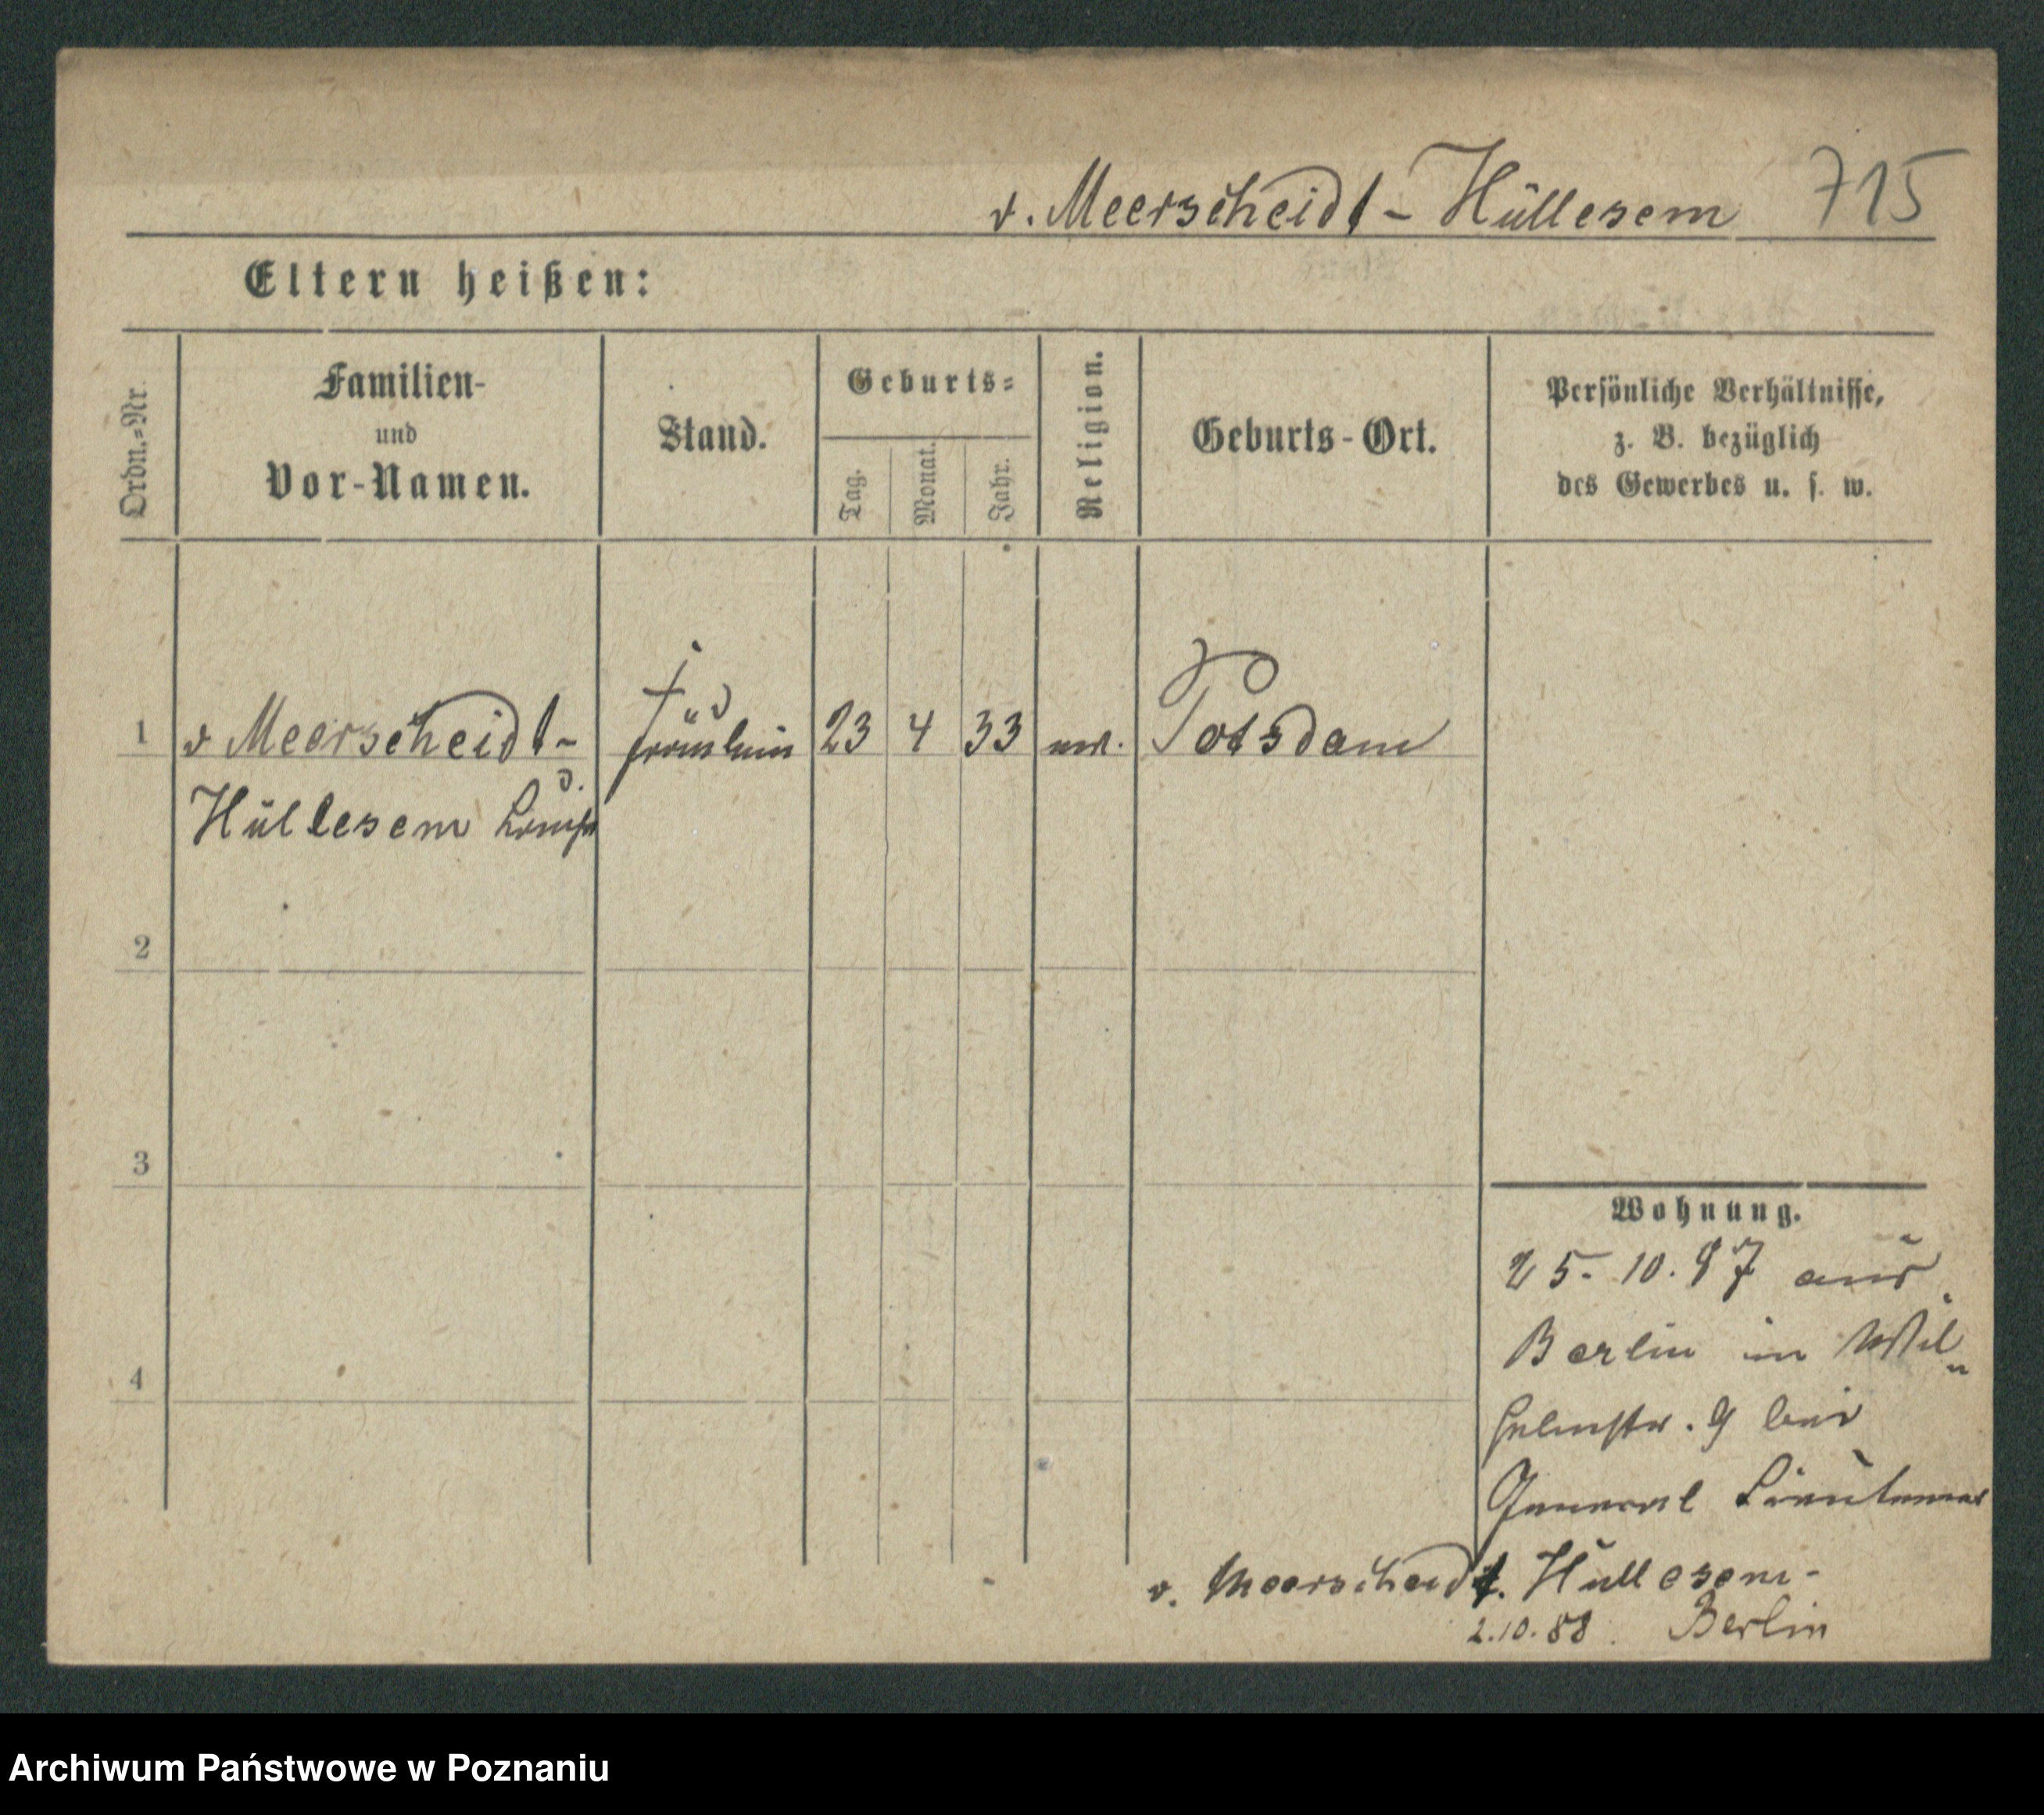 v. Meerscheidt-Hüllesem 715
Eltern heißen:
Ordn.-Nr.
Familien-
und
Vor-Namen.
Stand.
Geburts-
Tag.
Monat.
Jahr.
Religion.
Geburts-Ort.
Persönliche Verhältnisse,
z. B. bezüglich
des Gewerbes u. s. w.
1 v Meerscheidt- Fräulein 23 4 33 Potsdam
Hüllesem Louise
2
3
4
Wohnung.
25. 10. 87 aus
Berlin in Wil
helmstr. 9 bei
General Lieutenant
v. Meerscheidt. Hüllesem-
2.10.88. Berlin
Archiwum Państwowe w Poznaniu